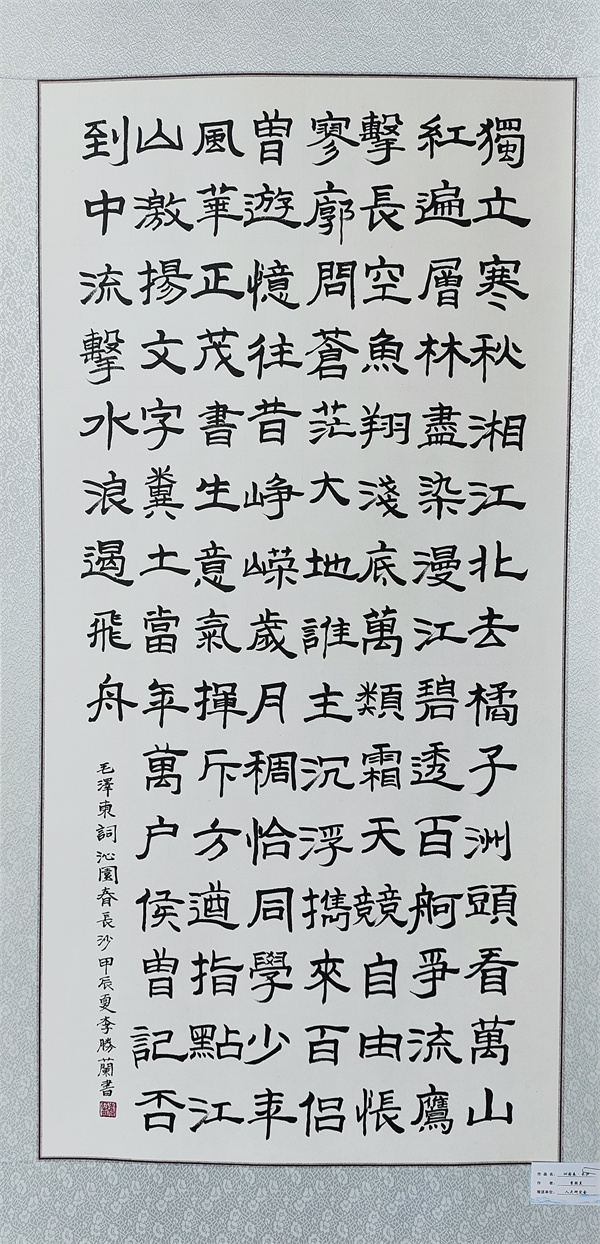 獨立寒秋湘江北去橘子洲頭看萬山
紅遍層林盡染漫江碧透百舸爭流鷹
擊長空魚翔淺底萬類霜天競自由悵
寥廓問蒼茫大地誰主沉浮攜來百侶
曾遊憶往昔崢嶸歲月稠恰同學少年
風華正茂書生意氣揮斥方遒指點江
山激揚文字糞土當年萬户侯曾記否
到中流擊水浪遏飛舟
毛澤東詞沁園春長沙甲辰夏李勝蘭書
作品名:
作者: